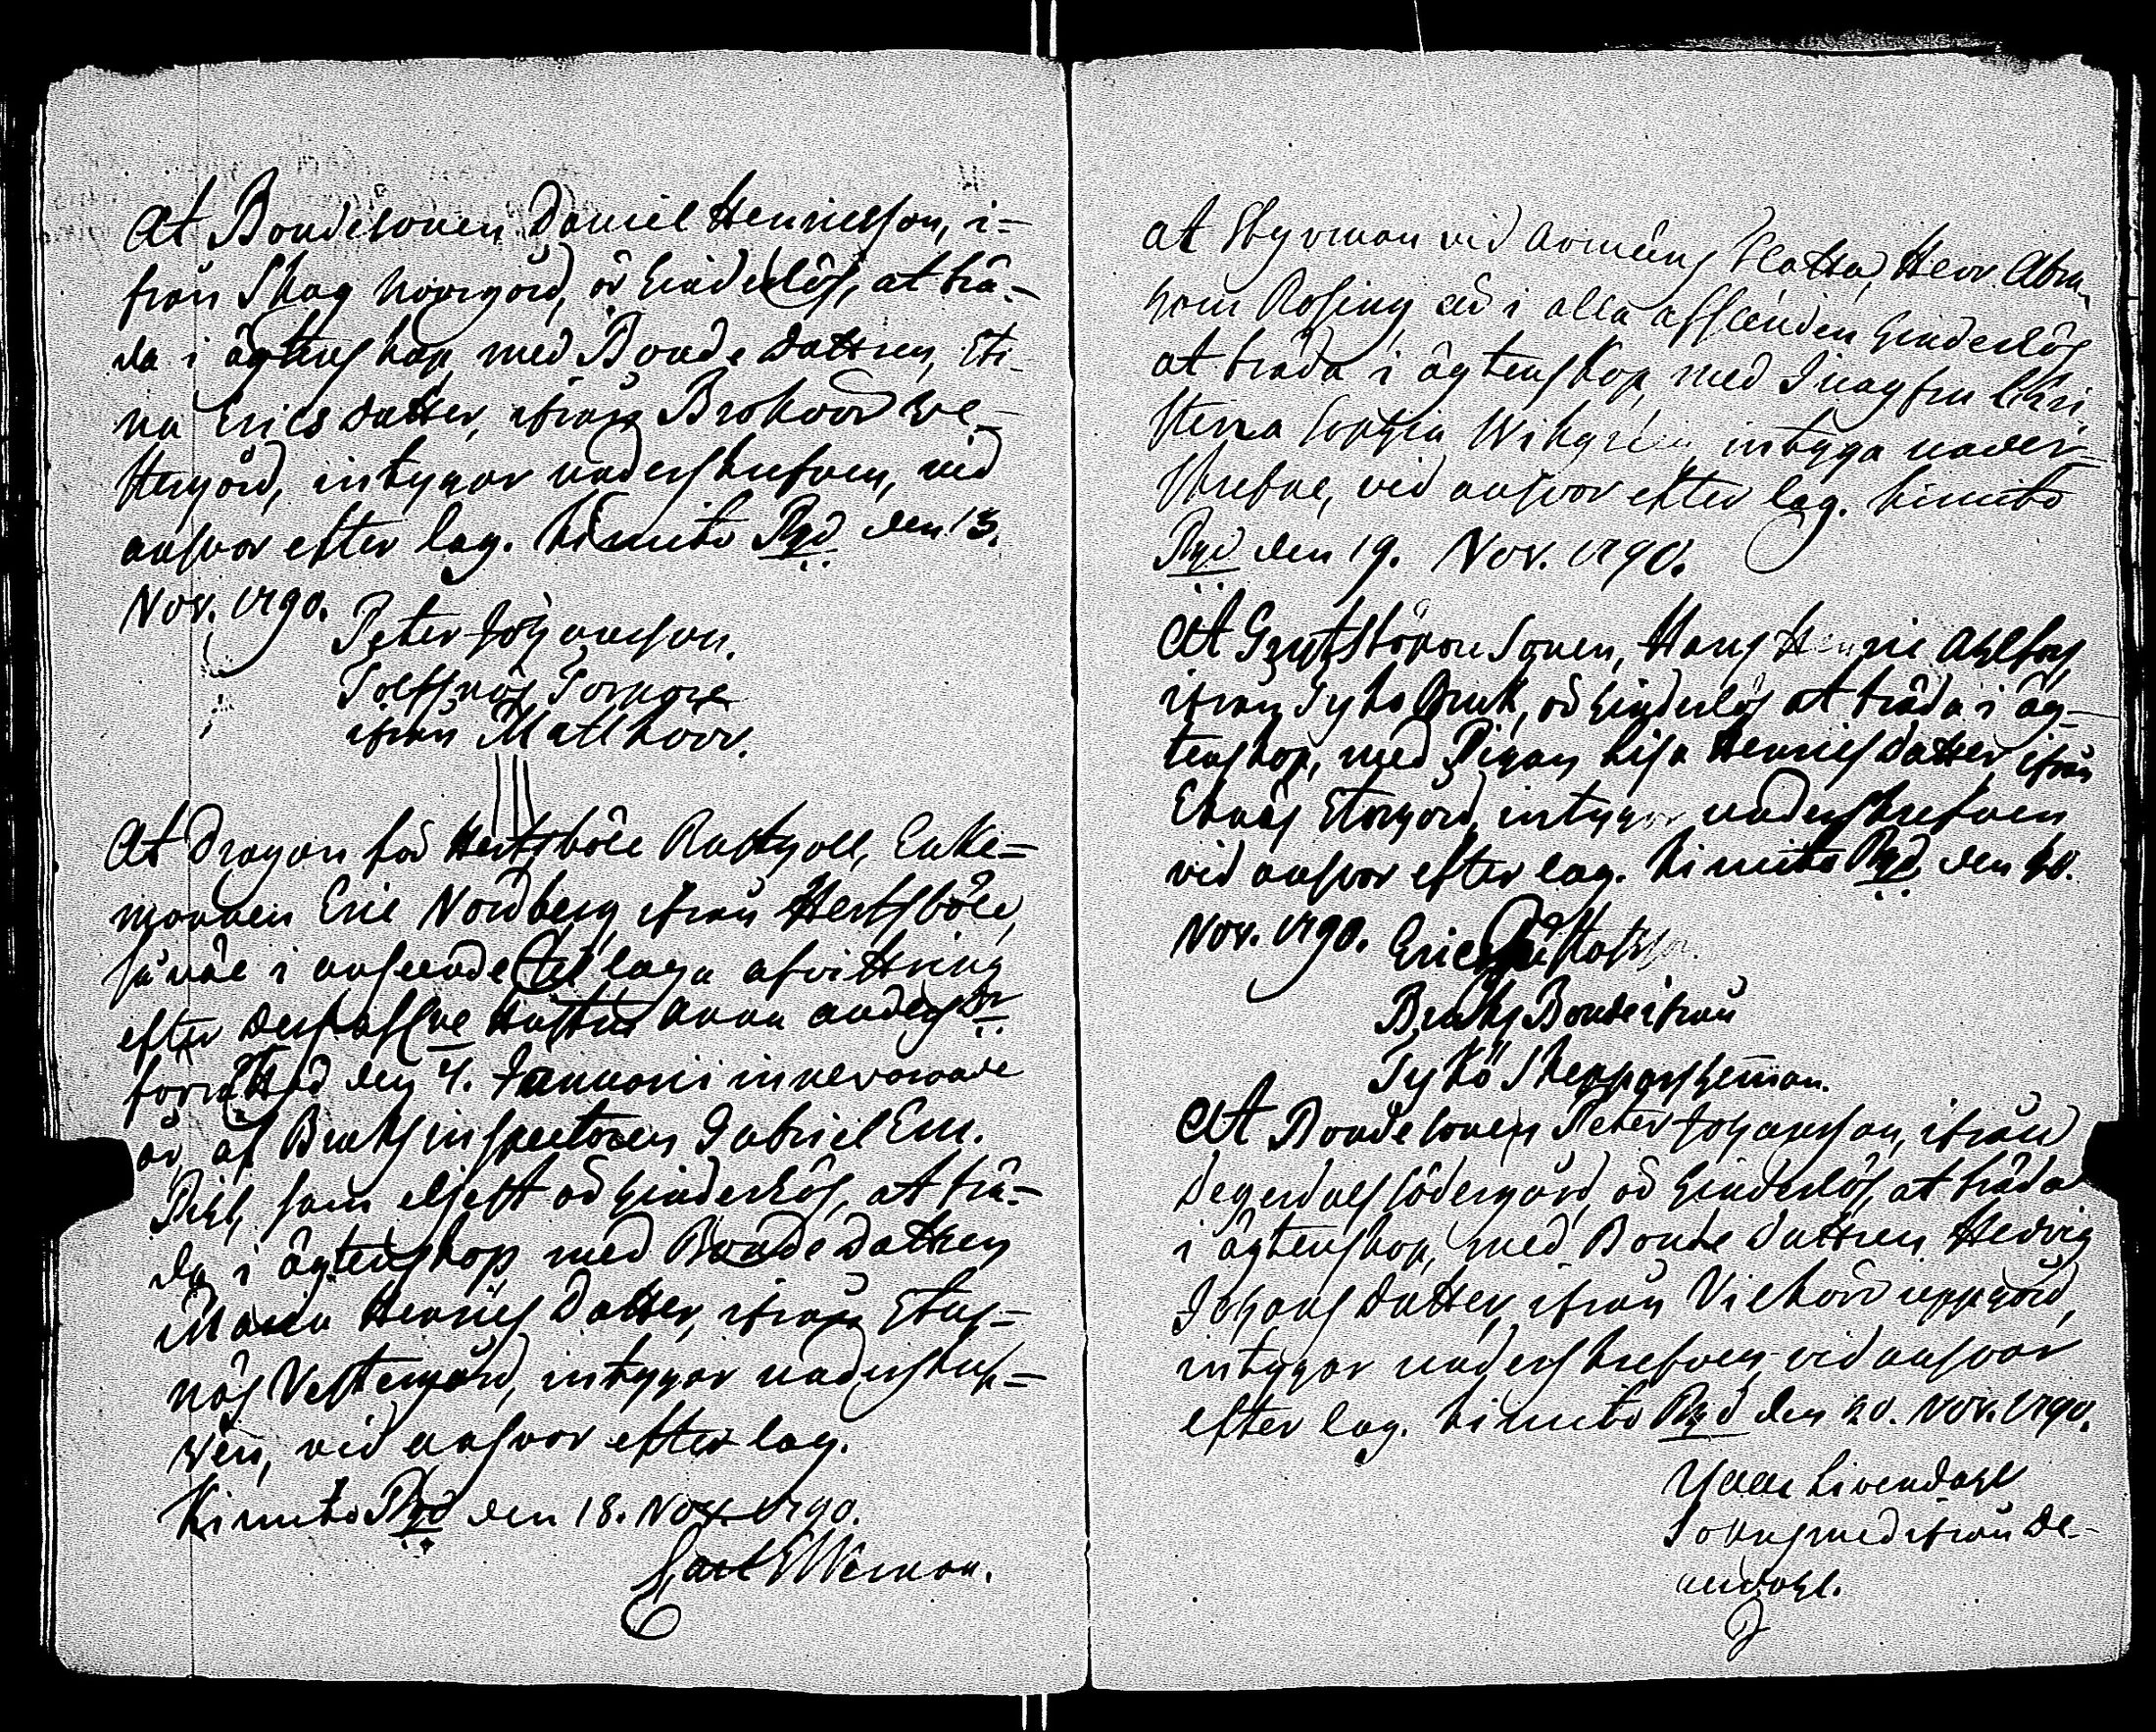 At Bondesonen Daniel Henricsson, i-
från Skog Norrgård, är hinderlös, at trä-
da i ägtenskap med Bonde dottren, Sti-
na Erics dotter, ifrån Brokärr We-
stergård, intygar underskrefven, vid
answar efter lag. Kimito Pgd den 13.
Nov. 1790.
Peter Johansson.
Tolfsnäs Torpare
ifrån Mattkärr.
At Dragon för Hertsböle Rusthåll, Enke-
mannen Eric Nordberg ifrån Hertsböle,
så väl i anseende til laga afvittring
efter dess afl:ne Hustru Anna Anders dr
förrättad den 4. Januarii innevarande
år, af Bruks inspectoren Gabriel Em.
Pihl, som eljest är hinderlös, at trä-
da i ägtenskap med Bonde dottren
Maria Henrics dotter, ifrån
näs Vestergård, intygar underskref-
ven, vid answar efter lag.
Kimito Pgd den 18. Nov. 1790.
Carl Weman.
at Styrman vid Arméens Flotta, Herr Abra-
ham Rosing är i alla afseenden hinderlös
at träda i ägtenskap med Jungfru Chri-
stina Sophia Wikgren, intyga under-
skrefne, vid answar efter lag. Kimito
Pgd den 19. Nov. 1790.
At Gruthskörare Sonen, Hans Henric Ahlfors
ifrån Tyko Bruk, är hinderlös at träda i äg-
tenskap, med Pigan Lisa Henrics dotter ifrån
Eknäs Storgård, intygar underskrefven
vid answar efter lag. Kimito Pgd den 20.
Nov. 1790. Eric
Bruks Bonde ifrån
Tykö Skeppars hemman.
At Bondesonen Peter Johansson, ifrån
Degerdals södergård, är hinderlös, at träda
i ägtenskap, med Bonde dottren Hedvig
Johans dotter, ifrån Vilkärr uppgård,
intygar underskrefven vid answar
efter lag. Kimito Pgd den 20. Nov. 1790.
Livendahl
Sokn smed ifrån De-